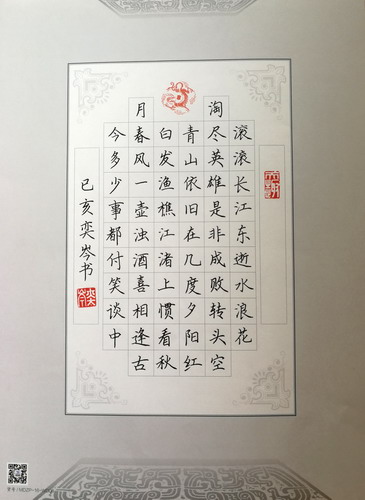 滚滚长江东逝水浪花
淘尽英雄是非成败转头空
青山依旧在几度夕阳红
白发渔樵江渚上惯看秋
月春风一壶浊酒喜相逢古
今多少事都付笑谈中
已亥奕岑书